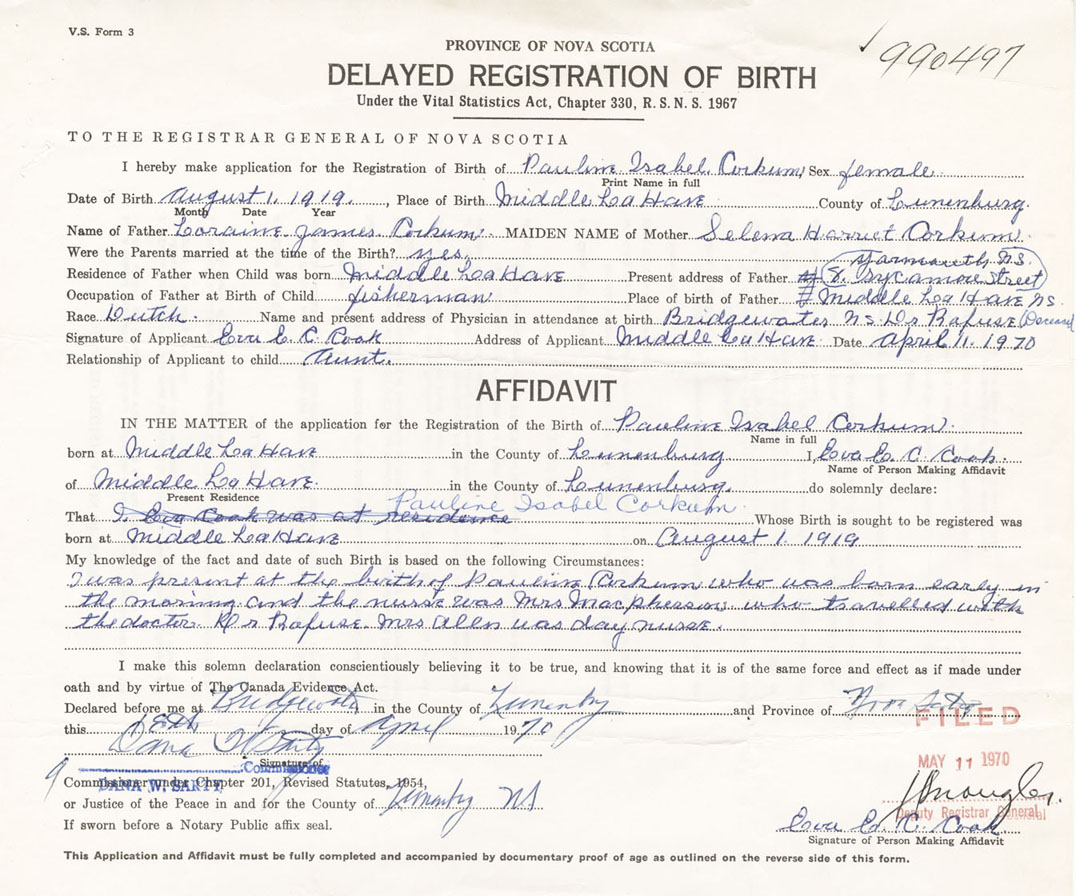 V.S. Form 3
PROVINCE OF NOVA SCOTIA
990497
DELAYED REGISTRATION OF BIRTH
Under the Vital Statistics Act, Chapter 330, R. S. N. S. 1967
TO THE REGISTRAR GENERAL OF NOVA SCOTIA
I hereby make application for the Registration of Birth of Pauline Isabel Corkum Sex female
Print Name in full
Date of Birth August 1. 1919. , Place of Birth Middle LaHave County of Lunenburg.
Month Date Year
Name of Father Loraine James Corkum. MAIDEN NAME of Mother Selena Harriet Corkum.
Were the Parents married at the time of the Birth? yes. Yarmouth N.S.
Residence of Father when Child was born Middle LaHave Present address of Father 8. Sycamore Street
Occupation of Father at Birth of Child fisherman Place of birth of Father Middle LaHave NS.
Race Dutch. Name and present address of Physician in attendance at birth Bridgewater NS. Dr Rafuse (Deceased
Signature of Applicant Eva E. C. Cook Address of Applicant Middle LaHave Date April 11. 1970
Relationship of Applicant to child Aunt.
AFFIDAVIT
IN THE MATTER of the application for the Registration of the Birth of Pauline Isabel Corkum.
Name in full
born at Middle LaHave in the County of Lunenburg I, Eva E. C. Cook.
Name of Person Making Affidavit
of Middle LaHave. in the County of Lunenburg. do solemnly declare:
Present Residence
Pauline Isabel Corkum.
That I Eva Cook was at residence Whose Birth is sought to be registered was
born at Middle LaHave on August 1. 1919
My knowledge of the fact and date of such Birth is based on the following Circumstances:
I was present at the birth of Pauline Corkum who was born early in
the morning and the nurse was Mrs Macpherson who travelled with
the doctor. Dr Rafuse. Mrs Allen was day nurse.
I make this solemn declaration conscientiously believing it to be true, and knowing that it is of the same force and effect as if made under
oath and by virtue of The Canada Evidence Act.
Declared before me at Bridgewater in the County of Lunenburg and Province of Nova Scotia
this day of April 1970
FILED
Dana W Sarty
Signature of
MAY 11 1970
Commissioner
Commissioner under Chapter 201, Revised Statutes, 1954,
DANA W. SARTY
or Justice of the Peace in and for the County of Lunenburg NS
Deputy Registrar General
If sworn before a Notary Public affix seal.
Eva E. C. Cook
Signature of Person Making Affidavit
This Application and Affidavit must be fully completed and accompanied by documentary proof of age as outlined on the reverse side of this form.